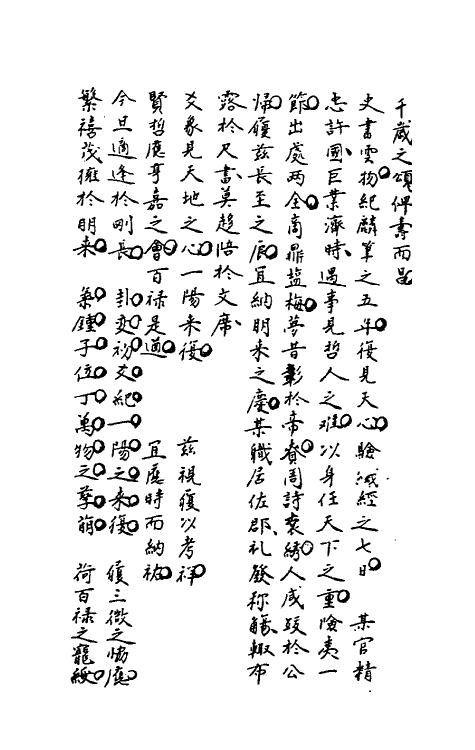 千歲之頌俾壽而昌
史書雲物紀麟筭之五年復見天心驗緘經之七日　某官精
忠許國巨業濟時遇事見哲人之難以身任天下之重險夷一
節出處兩全商鼎塩梅夢昔彰於帝賚周詩衮綉人咸跂於公
歸履茲長至之辰宜納明来之慶某職居佐郡礼發称觴輙布
露於尺書莫趨陪於文席
爻象見天地之心一陽来復　茲視履以考祥
賢哲應亨嘉之會百禄是遒　宜應時而納祐
今旦適逢於剛長　卦爻初爻紀一陽之来復　順三微之恊應
繁禧茂擁於明来　氣鍾子位丁萬物之孳萌　荷百禄之寵綏